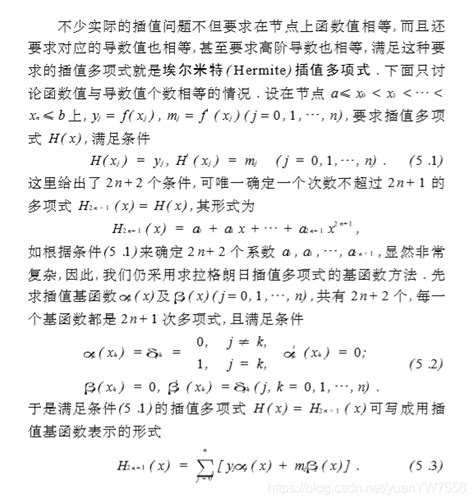 不少实际的插值问题不但要求在节点上函数值相等,而且还
要求对应的导数值也相等,甚至要求高阶导数也相等,满足这种要
求的插值多项式就是埃尔米特(Hermite)插值多项式.下面只讨
论函数值与导数值个数相等的情况.设在节点 a≤x₀<x₁<⋯<
xₙ≤b上,yⱼ=f(xⱼ),mⱼ=f′(xⱼ)(j=0,1,⋯,n),要求插值多项
式 H(x),满足条件
H(xⱼ)=yⱼ,H′(xⱼ)=mⱼ (j=0,1,⋯,n). (5.1)
这里给出了2n+2个条件,可唯一确定一个次数不超过2n+1的
多项式 H₂ₙ₊₁(x)=H(x),其形式为
H₂ₙ₊₁(x)=a₀+a₁x+⋯+a₂ₙ₊₁x²ⁿ⁺¹,
如根据条件(5.1)来确定2n+2个系数 a₀,a₁,⋯,a₂ₙ₊₁,显然非常
复杂,因此,我们仍采用求拉格朗日插值多项式的基函数方法.先
求插值基函数αⱼ(x)及βⱼ(x)(j=0,1,⋯,n),共有2n+2个,每一
个基函数都是2n+1次多项式,且满足条件
αⱼ(xₖ)=δⱼₖ= 0, j≠k, 1, j=k, αⱼ′(xₖ)=0;
(5.2)
βⱼ(xₖ)=0,βⱼ′(xₖ)=δⱼₖ(j,k=0,1,⋯,n).
于是满足条件(5.1)的插值多项式 H(x)=H₂ₙ₊₁(x)可写成用插
值基函数表示的形式
H₂ₙ₊₁(x)=∑ⱼ₌₀ⁿ[yⱼαⱼ(x)+mⱼβⱼ(x)]. (5.3)
https://blog.csdn.net/yuanYW7556